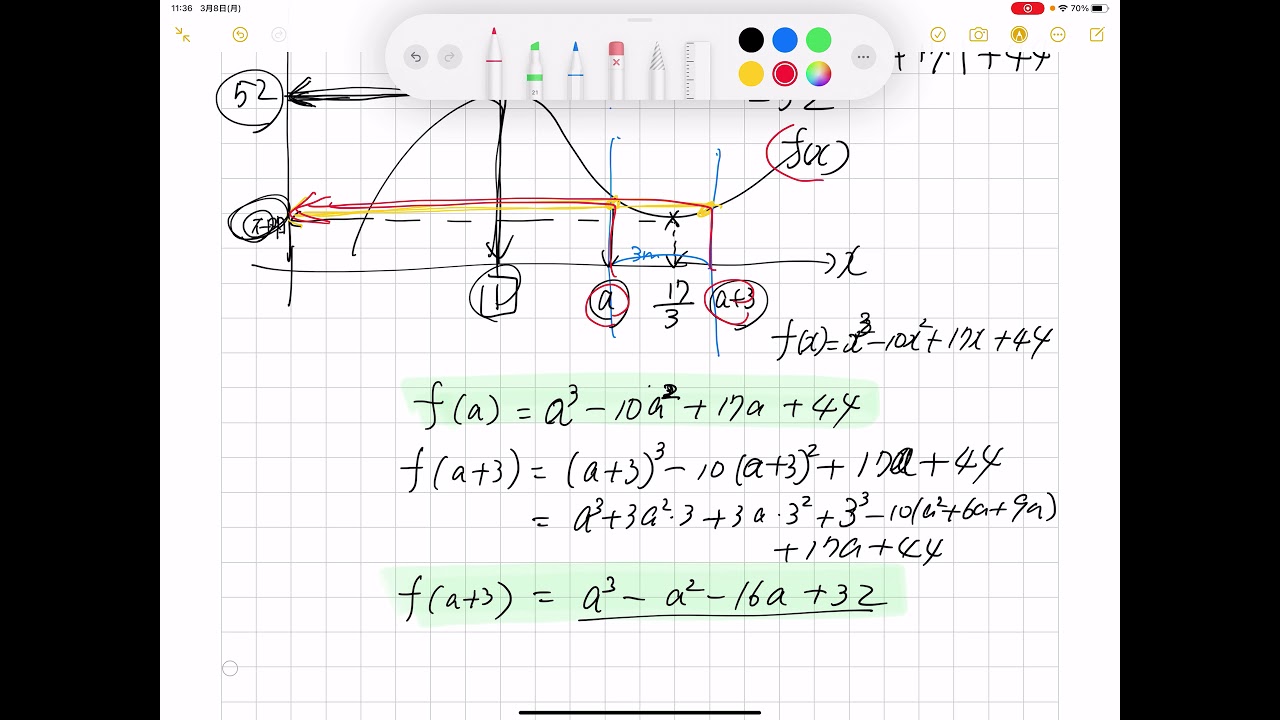 11:36 3月8日(月)
70%
21
+17·1+44
52
=52
f(x)
不明
3m
x
1
a
17/3
a+3
f(x)=x³-10x²+17x+44
f(a)=a³-10a²+17a+44
f(a+3)=(a+3)³-10(a+3)²+17a+44
=a³+3a²·3+3a·3²+3³-10(a²+6a+9a)
+17a+44
f(a+3)=a³-a²-16a+32